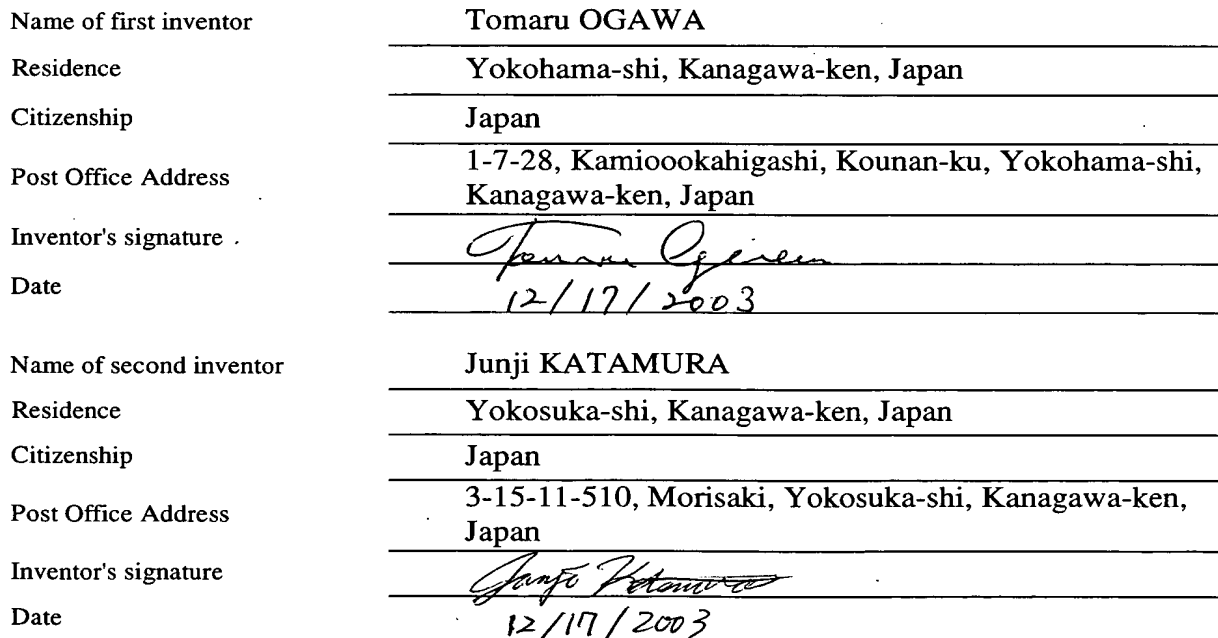 Name of first inventor Tomaru OGAWA
Residence Yokohama-shi, Kanagawa-ken, Japan
Citizenship Japan
Post Office Address 1-7-28, Kamioookahigashi, Kounan-ku, Yokohama-shi,
Kanagawa-ken, Japan
Inventor's signature Tomaru Ogawa
Date 12/17/2003
Name of second inventor Junji KATAMURA
Residence Yokosuka-shi, Kanagawa-ken, Japan
Citizenship Japan
Post Office Address 3-15-11-510, Morisaki, Yokosuka-shi, Kanagawa-ken,
Japan
Inventor's signature Junji Katamura
Date 12/17/2003